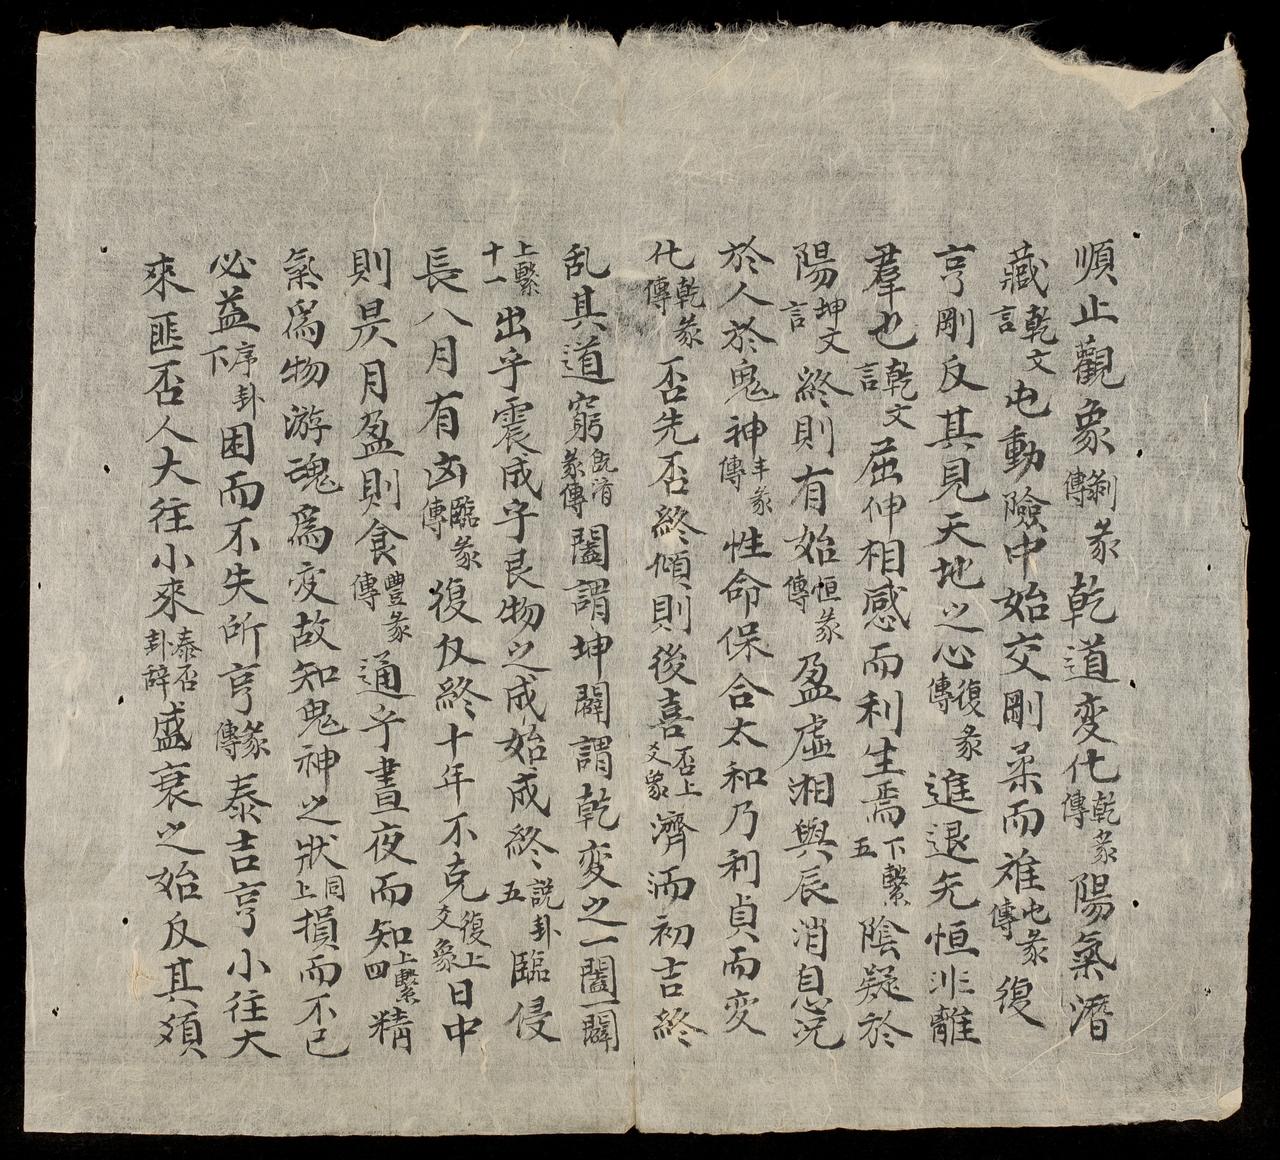 順止觀象剝彖傳乾道変化乾彖傳陽氣潛
藏乾文言屯動險中始交剛柔而难屯彖傳復
亨剛反其見天地之心復彖傳進退无恒非離
羣也乾文言屈伸相感而利生焉下繫五陰疑於
陽坤文言終則有始恒彖傳盈虛湘與辰消息况
於人於鬼神丰彖傳性命保合太和乃利貞而变
化乾彖傳否先否終傾則後喜否上爻象濟而初吉終
乱其道窮既濟彖傳闔謂坤闢謂乾変之一闔一闢
上繫十一出乎震成乎艮物之成始成終說卦五臨侵
長八月有凶臨彖傳復反終十年不克復上爻象日中
則昃月盈則食豐彖傳通乎晝夜而知上繫四精
氣爲物游魂爲变故知鬼神之狀同上損而不已
必益序卦下困而不失所亨彖傳泰吉亨小往大
來匪否人大往小來泰否卦辞盛衰之始反其須